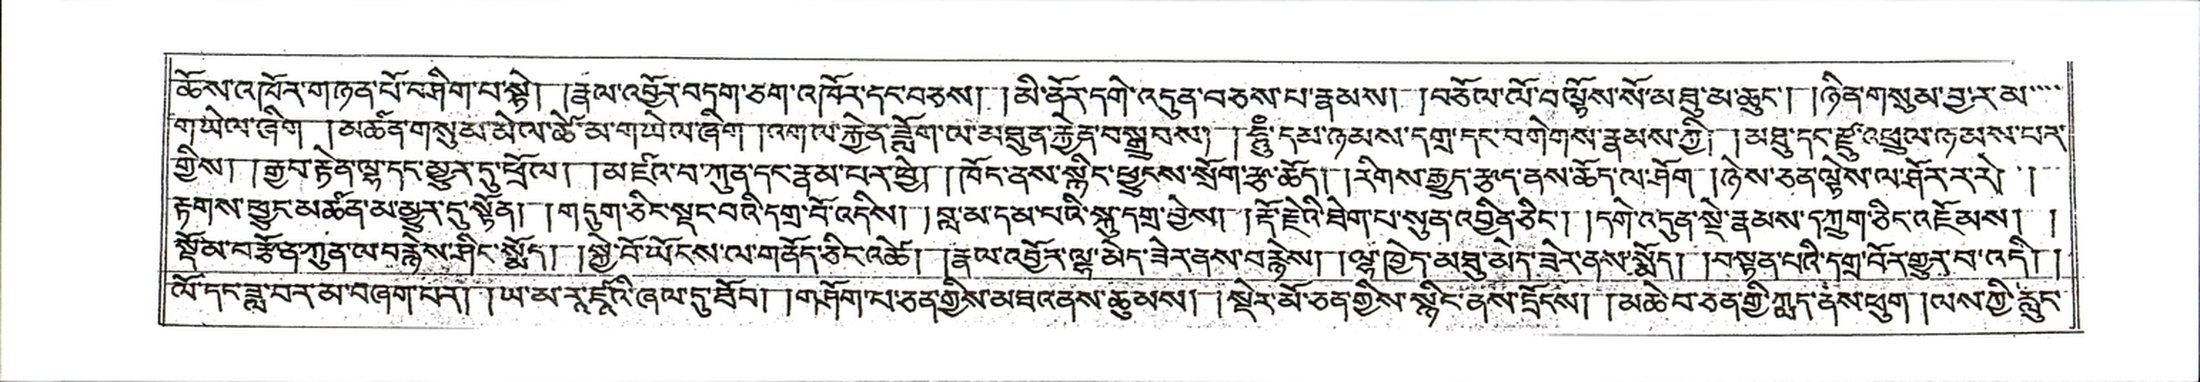 ཆོས་འཁོར་གཉན་པོ་ཤིག་པ་སྟེ། །རྣལ་འབྱོར་བདག་ཅག་འཁོར་དང་བཅས། །མི་ནོར་དགེ་འདུན་བཅས་པ་རྣམས། །བཅོལ་ལོ་བལྟོས་སོ་མ་མཐུ་མ་ཆུང་། །ཉིན་གསུམ་བྱ་ར་མ་
གཡེལ་ཞིག །མཚན་གསུམ་མེལ་ཚེ་མ་གཡེལ་ཞིག །འགལ་རྐྱེན་ཟློག་ལ་མཐུན་རྐྱེན་བསྒྲུབས། །ཧཱུྃ་དམ་ཉམས་དགྲ་དང་བགེགས་རྣམས་ཀྱི། །མཐུ་དང་རྫུ་འཕྲུལ་ཉམས་པར་
གྱིས། །རྒྱབ་རྟེན་ལྷ་དང་མྱུར་དུ་ཕྲོལ། །མ་ཛའ་བ་ཀུན་དང་རྣམ་པར་ཕྱེ། །ཁོང་ནས་སྙིང་ཕྱུངས་སྲོག་རྩ་ཆོད། །རིགས་རྒྱུད་རྩད་ནས་ཆོད་ལ་ཤོག །ཉེས་ཅན་ལྟེས་ལ་ཤོར་ར་རེ། །
རྟགས་ཕྱུང་མཚན་མ་མྱུར་དུ་སྟོན། །གདུག་ཅིང་སྡང་བའི་དགྲ་བོ་འདིས། །བླ་མ་དམ་པའི་སྐུ་དགྲ་བྱེས། །རྡོ་རྗེའི་ཐེག་པ་སུན་འབྱིན་ཅིང་། །དགེ་འདུན་སྡེ་རྣམས་དཀྲུག་ཅིང་འཇོམས། །
སྡོམ་བརྩོན་ཀུན་ལ་བརྙེས་ཤིང་སྨོད། །སྐྱེ་བོ་ཡོངས་ལ་གནོད་ཅིང་འཚེ། །རྣལ་འབྱོར་ལྷ་མེད་ཟེར་ནས་བརྙེས། །ལྷ་ཁྱེད་མཐུ་མེད་ཟེར་ནས་སྨོད། །བསྟན་པའི་དགྲ་བོར་གྱུར་བ་འདི། །
ལོ་དང་ཟླ་བར་མ་བཞག་པར། །ཡ་མ་རཱ་ཛཱའི་ཞལ་དུ་ཐོབ། །གཤོག་པ་ཅན་གྱིས་མཐའ་ནས་ཆུམས། །སྡེར་མོ་ཅན་གྱིས་སྙིང་ནས་དྲོངས། །མཆེ་བ་ཅན་གྱི་ཀླད་ནས་ཕུག །ལས་ཀྱི་རླུང་